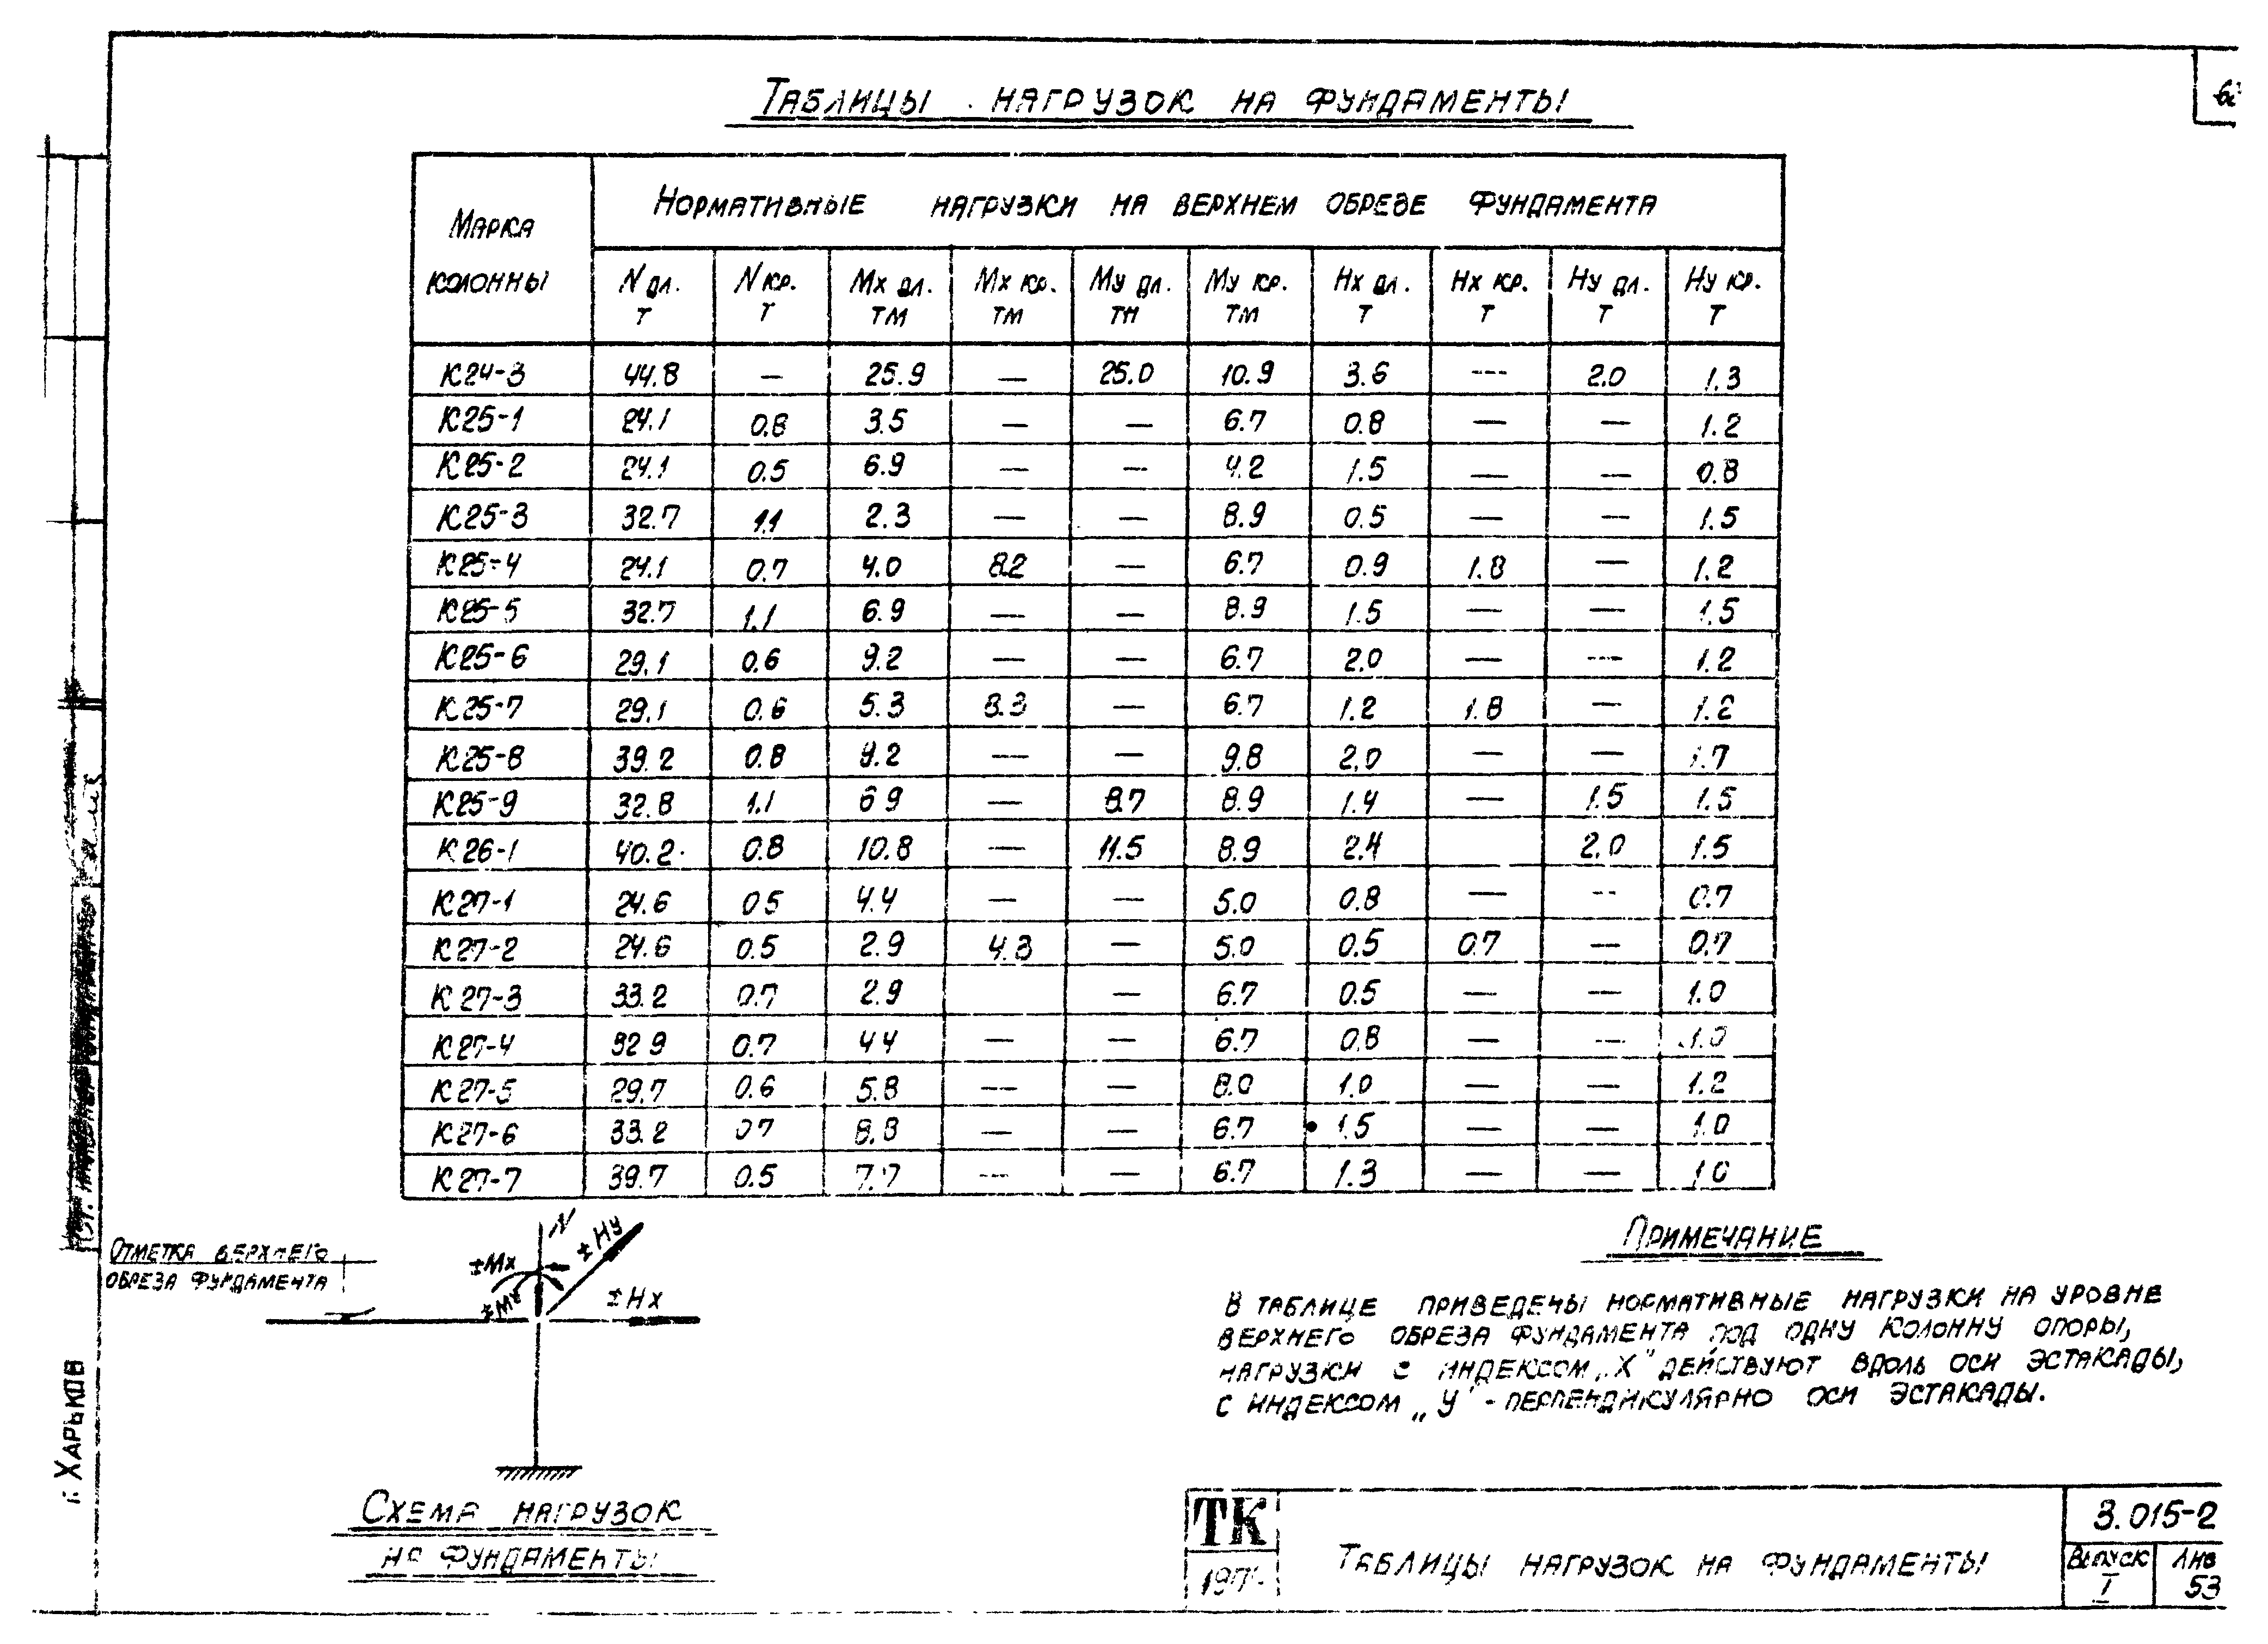 Таблицы нагрузок на фундаменты
Марка колонны
Нормативные нагрузки на верхнем обрезе фундамента
N дл. т | N кр. т | Mx дл. тм | Mx кр. тм | My дл. тм | My кр. тм | Hx дл. т | Hx кр. т | Hy дл. т | Hy кр. т
К24-3 44.8 — 25.9 — 25.0 10.9 3.6 --- 2.0 1.3
К25-1 24.1 0.8 3.5 — — 6.7 0.8 — — 1.2
К25-2 24.1 0.5 6.9 — — 4.2 1.5 — — 0.8
К25-3 32.7 1.1 2.3 — — 8.9 0.5 — — 1.5
К25-4 24.1 0.7 4.0 8.2 — 6.7 0.9 1.8 — 1.2
К25-5 32.7 1.1 6.9 — — 8.9 1.5 — — 1.5
К25-6 29.1 0.6 9.2 — — 6.7 2.0 — --- 1.2
К25-7 29.1 0.6 5.3 8.3 — 6.7 1.2 1.8 — 1.2
К25-8 39.2 0.8 9.2 — — 9.8 2.0 — — 1.7
К25-9 32.8 1.1 6 9 — 8.7 8.9 1.4 — 1.5 1.5
К26-1 40.2 0.8 10.8 — 11.5 8.9 2.4 2.0 1.5
К27-1 24.6 0 5 4.4 — — 5.0 0.8 — -- 0.7
К27-2 24.6 0.5 2.9 4.3 — 5.0 0.5 0.7 — 0.7
К27-3 33.2 0.7 2.9 — 6.7 0.5 — — 1.0
К27-4 32 9 0.7 4 4 — — 6.7 0.8 — — 1.0
К27-5 29.7 0.6 5.8 --- — 8.0 1.0 — — 1.2
К27-6 33.2 0 7 8.8 — — 6.7 1.5 — — 1.0
К27-7 39.7 0.5 7.7 --- — 6.7 1.3 — — 1 0
Отметка верхнего
обреза фундамента
N
±Hy
±Mx
±My
±Hx
Схема нагрузок
на фундаменты
Примечание
В таблице приведены нормативные нагрузки на уровне
верхнего обреза фундамента под одну колонну опоры,
нагрузки с индексом „X" действуют вдоль оси эстакады,
с индексом „У" - перпендикулярно оси эстакады.
г. Харьков
ТК
Таблицы нагрузок на фундаменты
3.015-2
Выпуск
I
53